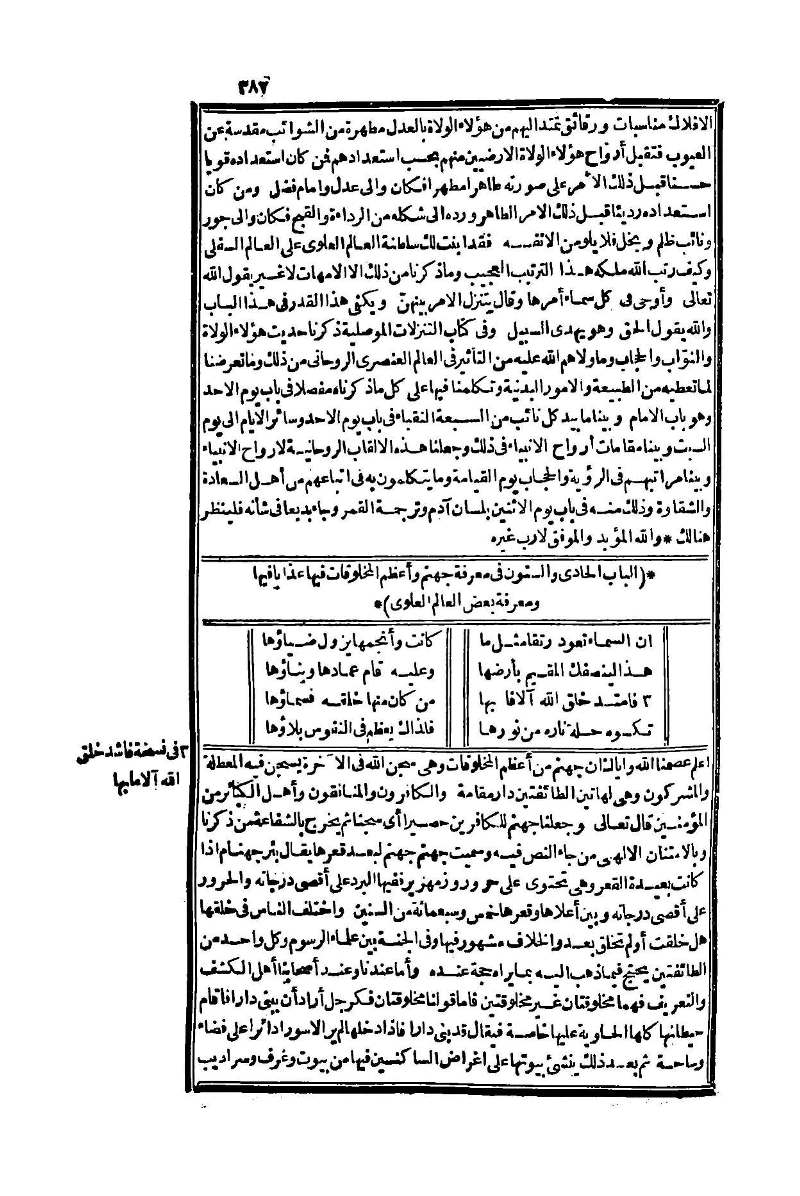 ٣٨٧
الافلاك مناسبات ورقائق تمتد اليهم من هؤلاء الولاة بالعدل مطهرة من الشوائب مقدسة عن
العيوب فتقبل أرواح هؤلاء الولاة الارضيين منهم بحسب استعدادهم فمن كان استعداده قويا
حسنا قبل ذلك الأمر على صورته طاهرا مطهرا فكان والى عدل وامام فضل ومن كان
استعداده رديئا قبل ذلك الامر الطاهر ورده الى شكله من الرداءة والقبح فكان والى جور
ونائب ظلم وبخل فلا يلومن الا نفسه فقد ابنت لك سلطنة العالم العلوى على العالم السفلى
وكيف رتب الله ملكه هذا الترتيب العجيب وما ذكرنا من ذلك الا الامهات لا غير يقول الله
تعالى وأوحى فى كل سماء أمرها وقال يتنزل الامر بينهنّ ويكفى هذا القدر فى هذا الباب
والله يقول الحق وهو يهدى السبيل وفى كتاب التنزلات الموصلية ذكرنا حديث هؤلاء الولاة
والنوّاب والحجاب وما ولاهم الله عليه من التأثير فى العالم العنصرى الروحانى من ذلك وما تعرضنا
لما تعطيه من الطبيعة والامور البدنية وتكلمنا فيها على كل ما ذكرناه مفصلا فى باب يوم الاحد
وهو باب الامام وبينا ما بيد كل نائب من السبعة النقباء فى باب يوم الاحد وسائر الايام الى يوم
السبت وبينا مقامات أرواح الانبياء فى ذلك وجعلنا هذه الالقاب الروحانية لارواح الانبياء
وبينا مراتبهم فى الرؤية والحجاب يوم القيامة وما يتكلمون به فى اتباعهم من أهل السعادة
والشقاوة وذلك منه فى باب يوم الاثنين بلسان آدم وترجمة القمر وجاء بديعا فى شأنه فلينظر
هنالك * والله المؤيد والموفق لارب غيره
*(الباب الحادى والستون فى معرفة جهنم وأعظم المخلوقات فيها عذابا فيها
ومعرفة بعض العالم العلوى)*
ان السماء تعود رتقا مثل ما كانت وأنجمها يزول ضياؤها
هذا لينصفك المقيم بأرضها وعليه قام عمادها وبناؤها
٣ فامتد خلق الله آلافا بها من كان منها خلقه فسماؤها
تكسوه حلة ناره من نورها فلذاك يعظم فى النفوس بلاؤها
٣ فى نسخة فاشتد خلق
الله آلاما بها
اعلم عصمنا الله وايالك ان جهنم من أعظم المخلوقات وهى سجن الله فى الآخرة يسجن فيه المعطلة
والمشركون وهى لهاتين الطائفتين دار مقامة والكافرون والمنافقون وأهل الكبائر من
المؤمنين قال تعالى وجعلنا جهنم للكافرين حصيرا أى سجنا ثم يخرج بالشفاعة من ذكرنا
وبالامتنان الالهى من جاء النص فيه وسميت جهنم جهنم لبعد قعرها يقال بئر جهنام اذا
كانت بعيدة القعر وهى تحتوى على حرور وزمهرير ففيها البرد على أقصى درجاته والحرور
على أقصى درجاته وبين أعلاها وقعرها خمس وسبعمائة من السنين واختلف الناس فى خلقها
هل خلقت أو لم تخلق بعد والخلاف مشهور فيها وفى الجنة بين علماء الرسوم وكل واحد من
الطائفتين يحتج فيما ذهب اليه بما يراه حجة عنده وأما عندنا وعند أصحابنا أهل الكشف
والتعريف فهما مخلوقتان غير مخلوقتين فاما قولنا مخلوقتان فكرجل أراد أن يبنى دارا فاقام
حيطانها كلها الحاوية عليها خاصة فيقال قد بنى دارا فاذا دخلها لم ير الا سورا دائرا على فضاء
وساحة ثم بعد ذلك ينشئ بيوتها على اغراض الساكنين فيها من بيوت وغرف وسراديب